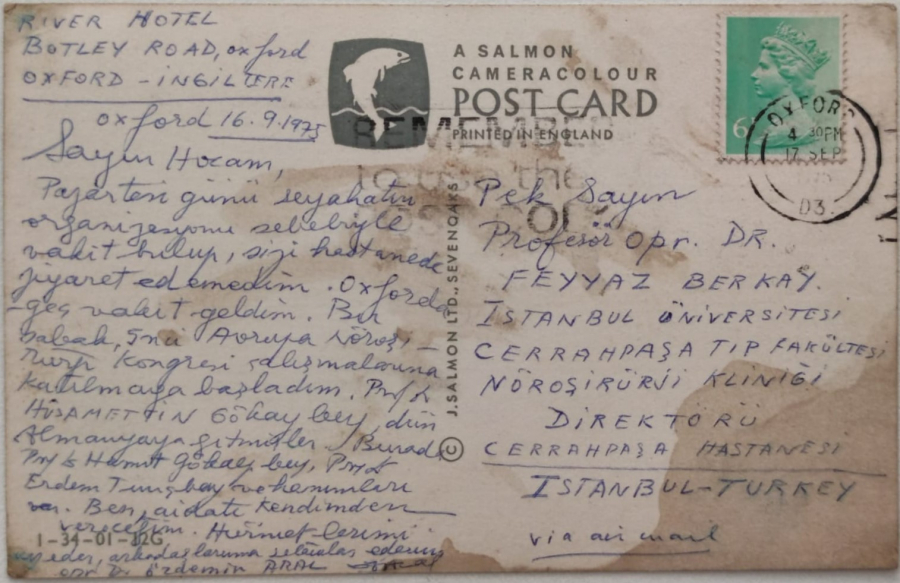 RIVER HOTEL
BOTLEY ROAD, oxford
OXFORD - İNGİLTERE
oxford 16.9.1975
Sayın Hocam,
Pazartesi günü seyahatın
organizasyonu sebebiyle
vakit bulup, sizi hastanede
ziyaret edemedim. Oxforda
geç vakit geldim. Bu
sabah, 5nci Avrupa Nöroşi-
rurji Kongresi çalışmalarına
katılmaya başladım. Prof Dr
HÜSAMETTİN Gökay bey, dün
Almanyaya gitmişler. Burada
Prof Dr Hamit Gökalp bey, Prof Dr
Erdem Tunçbay ve hanımları
var. Ben, aidatı kendimden
vereceğim. Hürmetlerimi
eder, arkadaşlarıma selamlar ederim
opr Dr. özdemir ARAL
1-34-01-12G
A SALMON
CAMERACOLOUR
POST CARD
PRINTED IN ENGLAND
© J. SALMON LTD., SEVENOAKS
REMEMBER
to use the
POST CODE
6½
OXFORD
4 30PM
17 SEP
1975
D3.
Pek Sayın
Profesör Opr. DR.
FEYYAZ BERKAY.
İSTANBUL ÜNİVERSİTESİ
CERRAHPAŞA TIP FAKÜLTESİ
NÖROŞİRÜRJİ KLİNİĞİ
DİREKTÖRÜ
CERRAHPAŞA HASTANESİ
İSTANBUL - TURKEY
via air mail